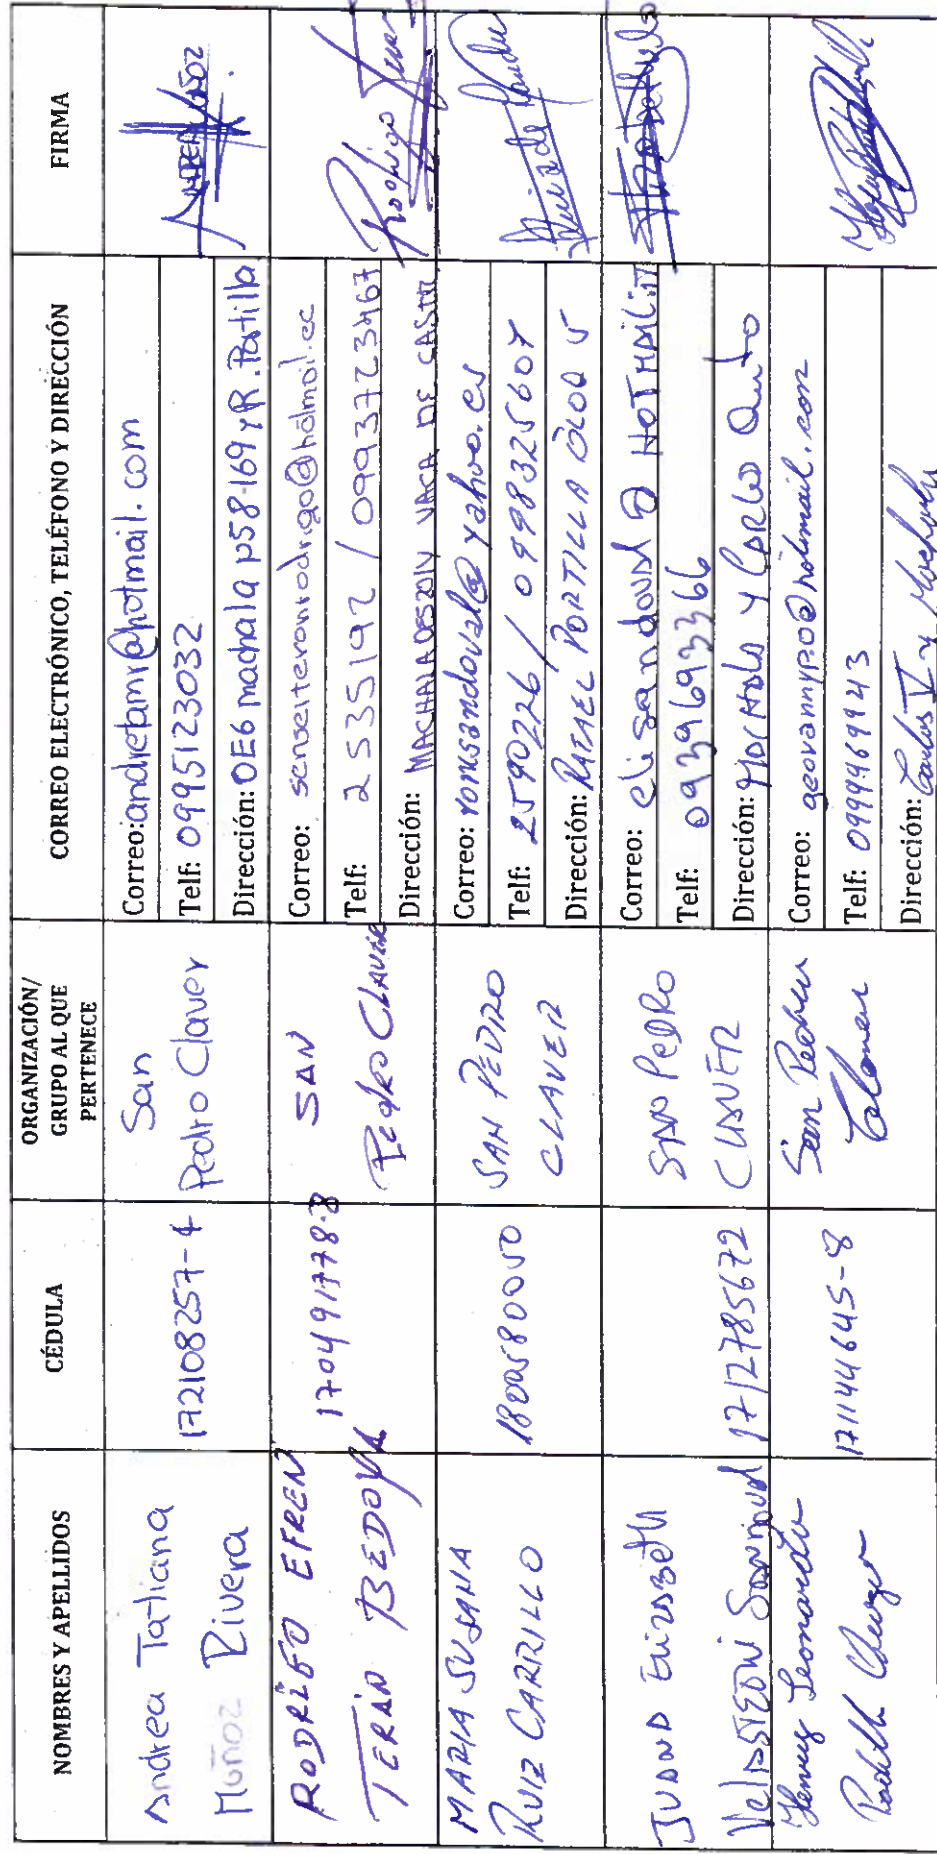 NOMBRES Y APELLIDOS
CÉDULA
ORGANIZACIÓN/
GRUPO AL QUE
PERTENECE
CORREO ELECTRÓNICO, TELÉFONO Y DIRECCIÓN
FIRMA
Andrea Tatiana
Muñoz Rivera
172108257-4
San
Pedro Claver
Correo: andretamr@hotmail.com
Telf: 0995123032
Dirección: OE6 machala N58-169 y R. Portilla
RODRIGO EFREN
TERÁN BEDOYA
170491778-8
SAN
PEDRO CLAVER
Correo: senseiteranrodrigo@hotmail.ec
Telf: 2535192 / 0993723467
Dirección: MACHALA OE520IV VACA DE CASTR
Rodrigo Teran
MARIA SUSANA
RUIZ CARRILLO
1800580050
SAN PEDRO
CLAVER
Correo: romusandoval@yahoo.es
Telf: 2590226 / 0998325607
Dirección: RAFAEL PORTILLA
JUANA Elizabeth
Velastegui Sandoval
1712785672
SAN PEDRO
CLAVER
Correo: elisandoval@HOTMAIL
Telf: 0939693366
Dirección: MACHALA Y CARLOS Quinto
Henry Leonardo
171144645-8
San Pedro
Claver
Correo: geovannypo@hotmail.com
Telf: 0999969943
Dirección: Carlos V y Machala